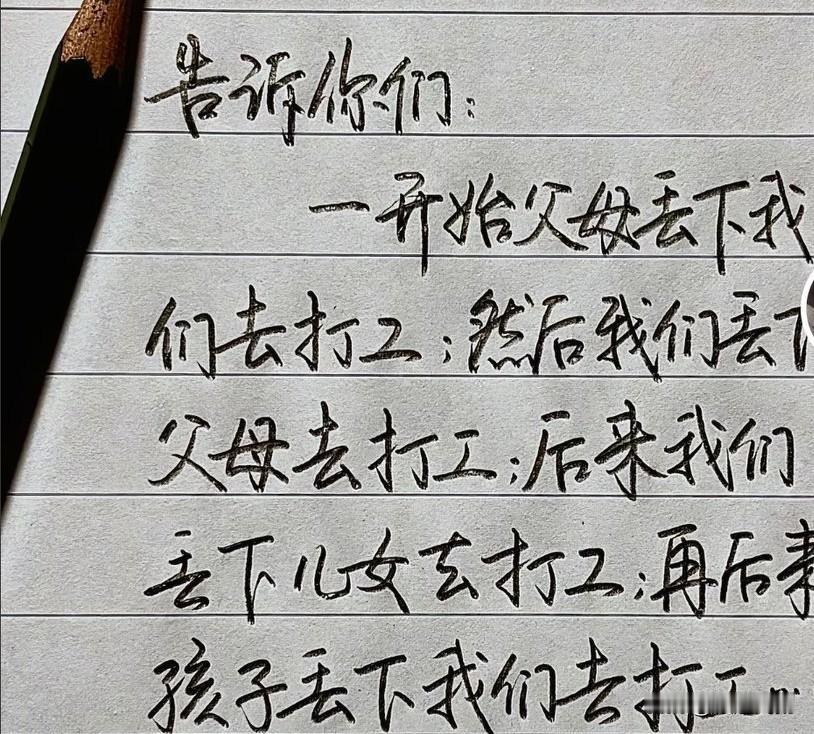 告诉你们：
一开始父母丢下我
们去打工；然后我们丢下
父母去打工；后来我们
丢下儿女去打工；再后来
孩子丢下我们去打工…